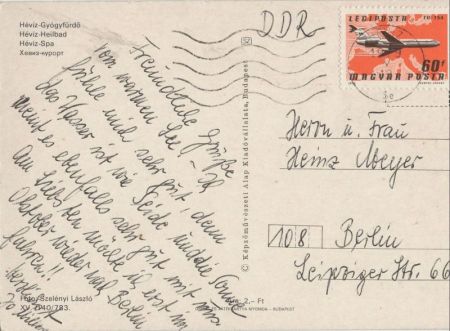 Hévíz-Gyógyfürdő
Hévíz-Heilbad
Hévíz-Spa
Хевиз-курорт
DDR
LEGIPOSTA TU-154
60f
MAGYAR POSTA
Freundliche Grüße
vom warmen See! – Ich
fühle mich sehr gut, denn
das Wasser ist wie Seide und die Sonne
meint es ebenfalls sehr gut mit uns.
Am liebsten möchte ich erst im
Oktober wieder nach Berlin
fahren!!
Herrn u. Frau
Heinz Meyer
108 Berlin
Leipziger Str. 66
© Képzőművészeti Alap Kiadóvállalata, Budapest
Foto: Szelényi László
XV. 7140/783.
Ára: 2,– Ft
BUDAPEST